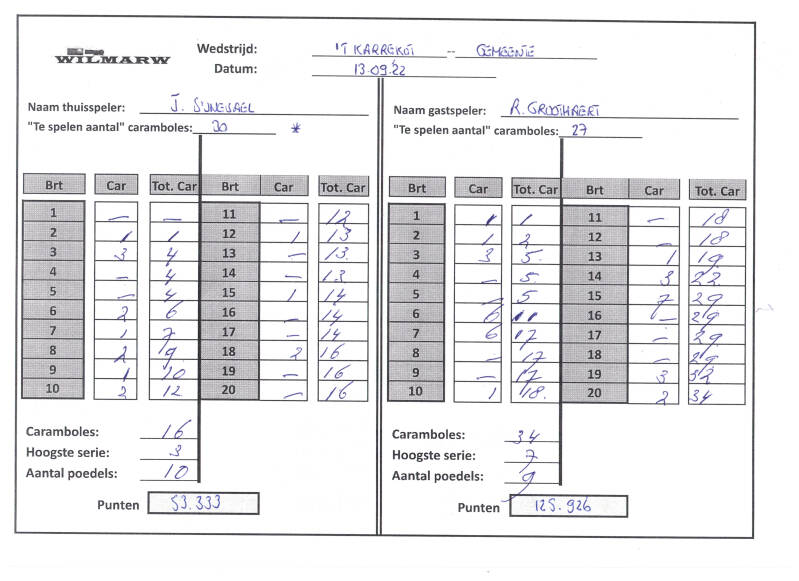 WILMARW
Wedstrijd: 'T KARREKOT -- GEMEENTE
Datum: 13.09.'22
Naam thuisspeler: J. SIJNESAEL
"Te spelen aantal" caramboles: 30 *
Brt Car Tot. Car Brt Car Tot. Car
1 — — 11 — 12
2 1 1 12 1 13
3 3 4 13 — 13.
4 — 4 14 — 13
5 — 4 15 1 14
6 2 6 16 — 14
7 1 7 17 — 14
8 2 9 18 2 16
9 1 10 19 — 16
10 2 12 20 — 16
Caramboles: 16
Hoogste serie: 3
Aantal poedels: 10
Punten 53.333
Naam gastspeler: R. GROOTHAERT
"Te spelen aantal" caramboles: 27
Brt Car Tot. Car Brt Car Tot. Car
1 1 1 11 — 18
2 1 2 12 — 18
3 3 5. 13 1 19
4 — 5. 14 3 22
5 — 5 15 7 29
6 6 11 16 — 29
7 6 17 17 — 29
8 — 17 18 — 29
9 — 17 19 3 32
10 1 18. 20 2 34
Caramboles: 34
Hoogste serie: 7
Aantal poedels: 9
Punten 125.926